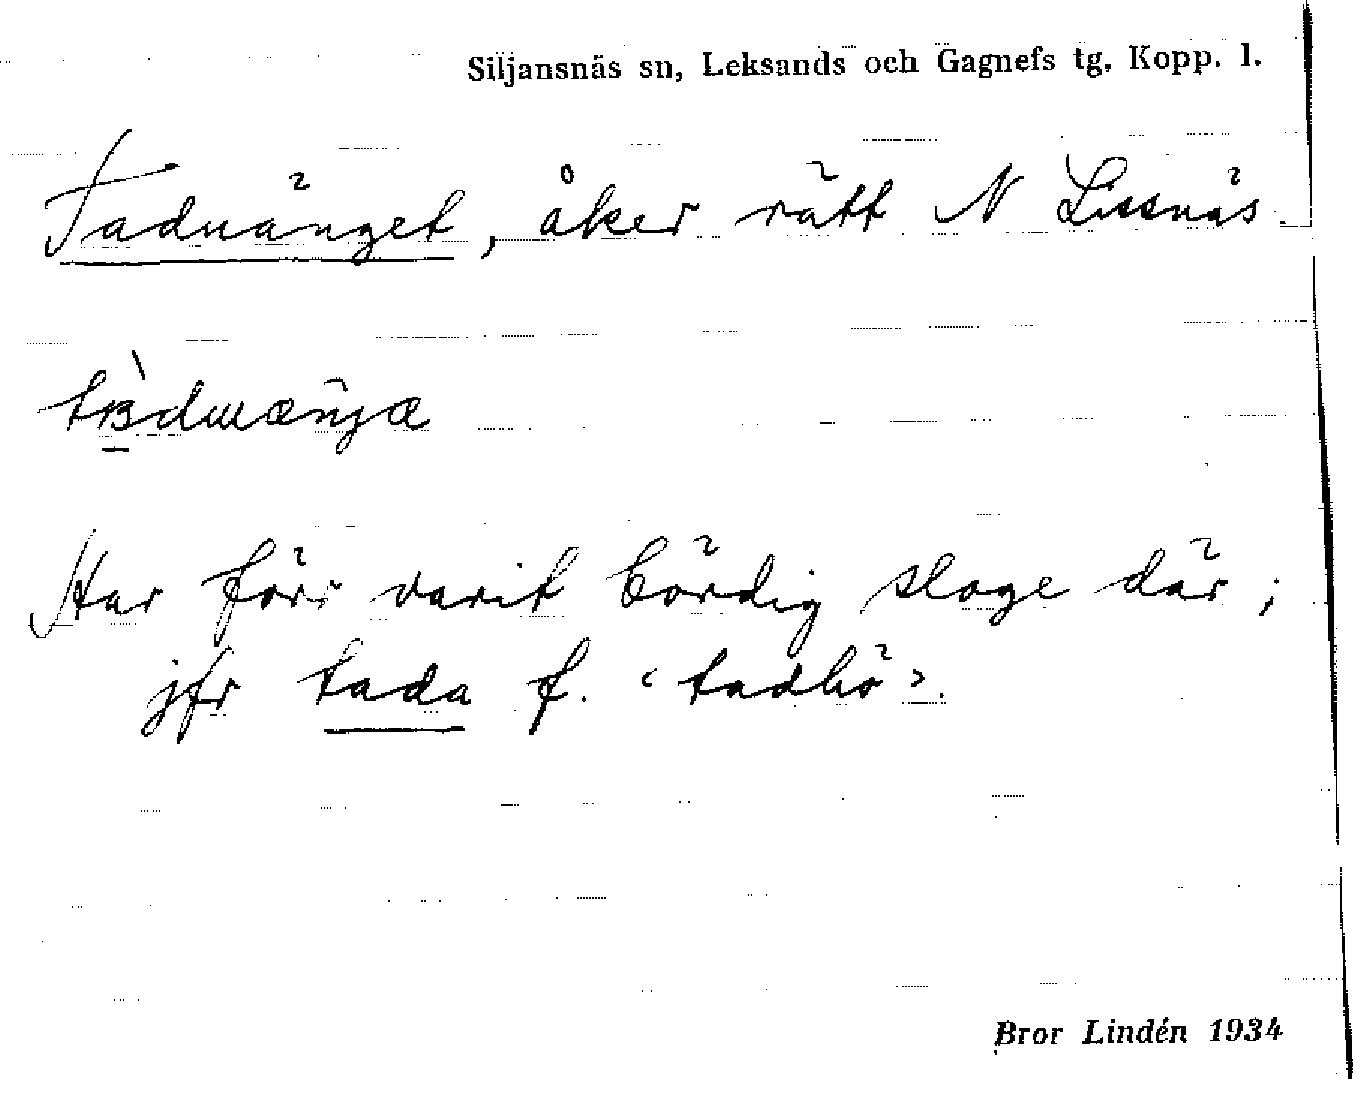 Siljansnäs sn, Leksands och Gagnefs tg, Kopp. l.
Tadnänget, åker rätt N Lissnäs
Har förr varit bördig sloge där ;
jfr tada f. ‹tadhö›.
Bror Lindén 1934